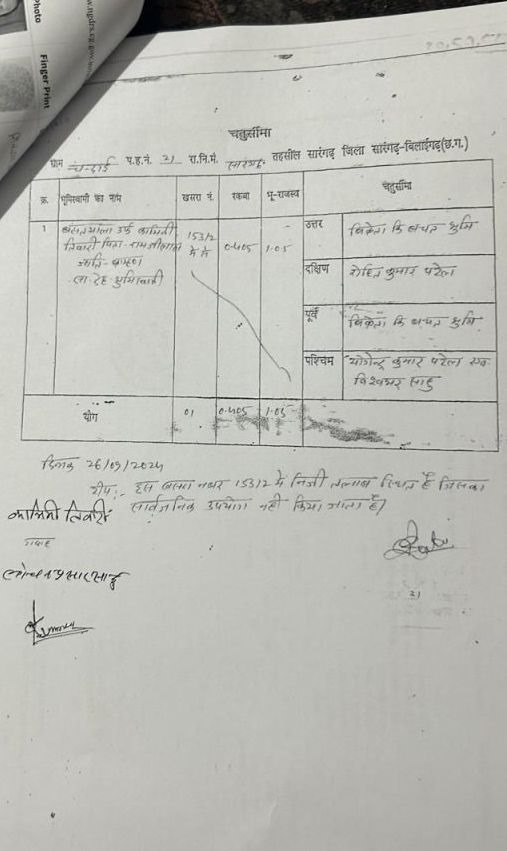 Photo
Finger Print
चतुर्सीमा
ग्राम चन्दाई प.ह.नं. 21 रा.नि.मं. सारंगढ़ तहसील सारंगढ़ जिला सारंगढ़-बिलाईगढ़(छ.ग.)
क्र. भूमिस्वामी का नाम खसरा नं. रकबा भू-राजस्व चतुर्सीमा
1 उर्फ कामिनी 153/2 0.405 1.05 उत्तर विक्रेता कि बचत भूमि
तिवारी पिता में से
जाति- ब्राम्हण दक्षिण रोहित कुमार पटेल
सा. देह भूमिस्वामी
पूर्व विक्रेता कि बचत भूमि
पश्चिम योगेन्द्र कुमार पटेल एवं
विश्वम्भर साहु
योग 01 0.405 1.05
दिनांक 26/09/2024
टीप:- इस खसरा नम्बर 153/2 में निजी तालाब स्थित है जिसका
सार्वजनिक उपयोग नहीं किया जाता है।
कामिनी तिवारी
गवाह
21